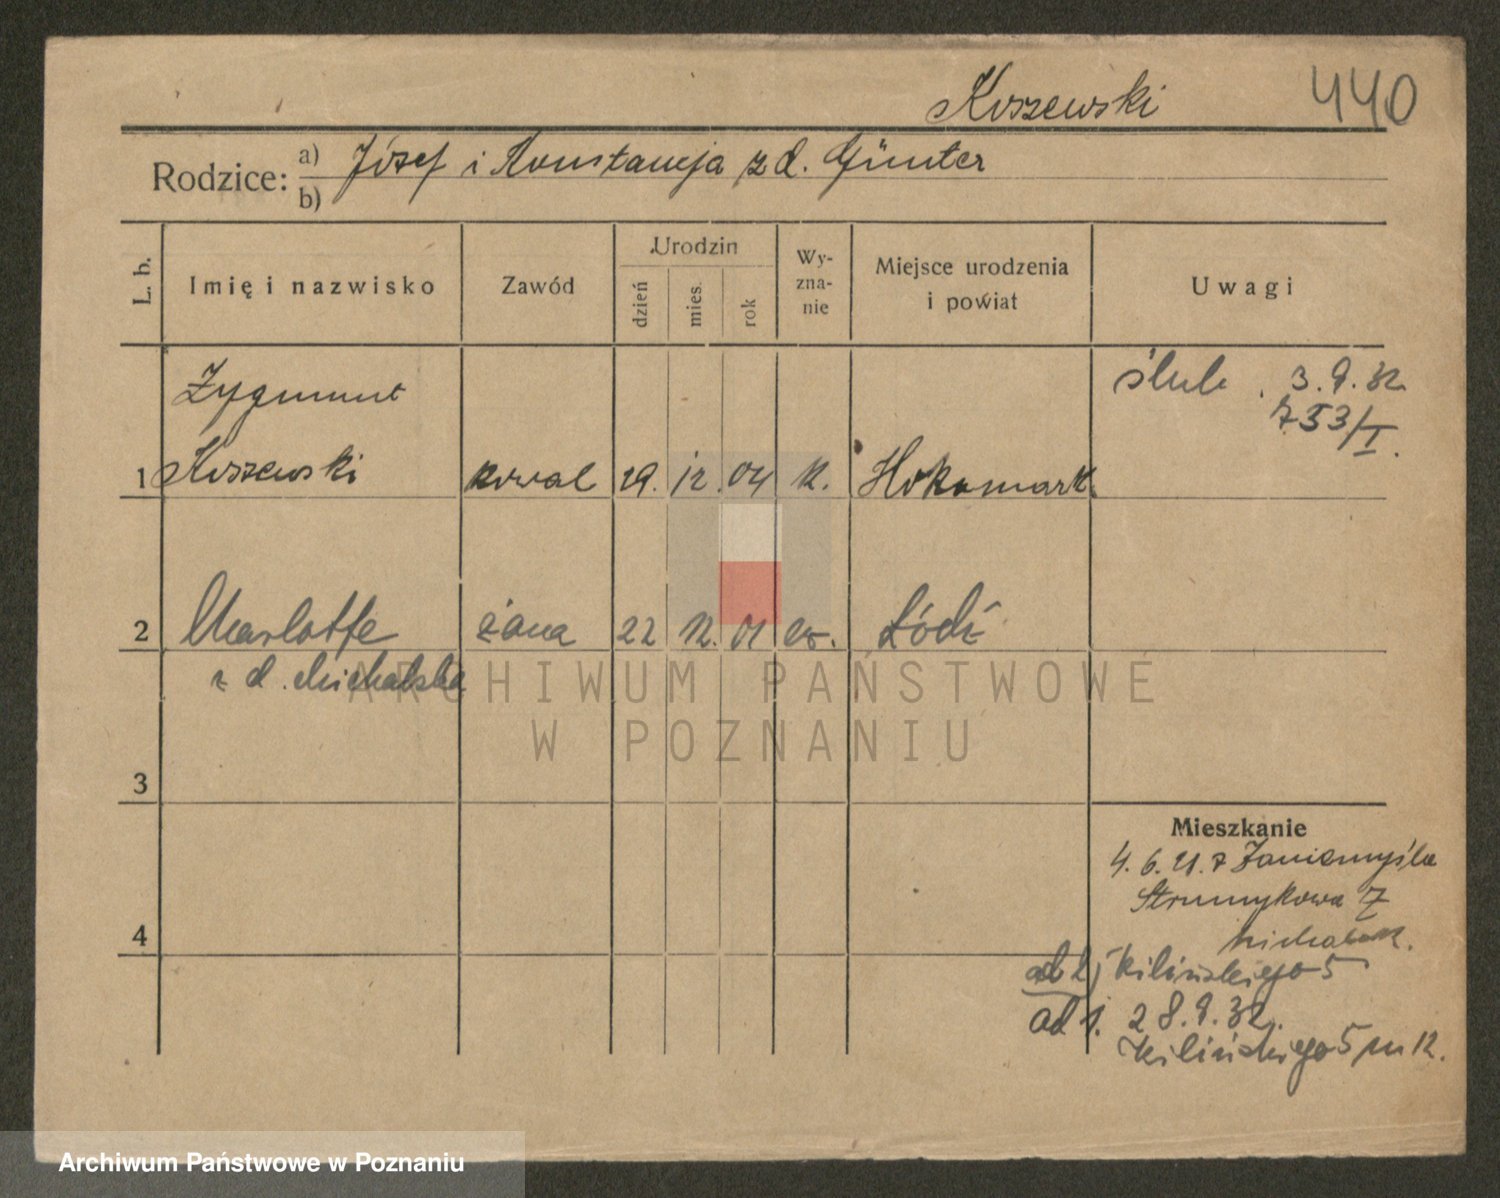 Koszewski 440
Rodzice: a) Józef i Konstancja z d. Günter
b)
L. b. Imię i nazwisko Zawód Urodzin dzień mies. rok Wy-zna-nie Miejsce urodzenia i powiat Uwagi
Zygmunt ślub 3.9.32
753/I.
1 Koszewski kowal 29. 12. 04 k. Hokamark
2 Charlotte żona 22 12. 01 ew. Łódź
z d. Michalska
ARCHIWUM PAŃSTWOWE
W POZNANIU
3
Mieszkanie
4. 6. 21. z Zaniemyśla
Strumykowa 7
4
ad 2) Kilińskiego 5
ad 1. 28.9.32.
Kilińskiego 5 m 12.
Archiwum Państwowe w Poznaniu